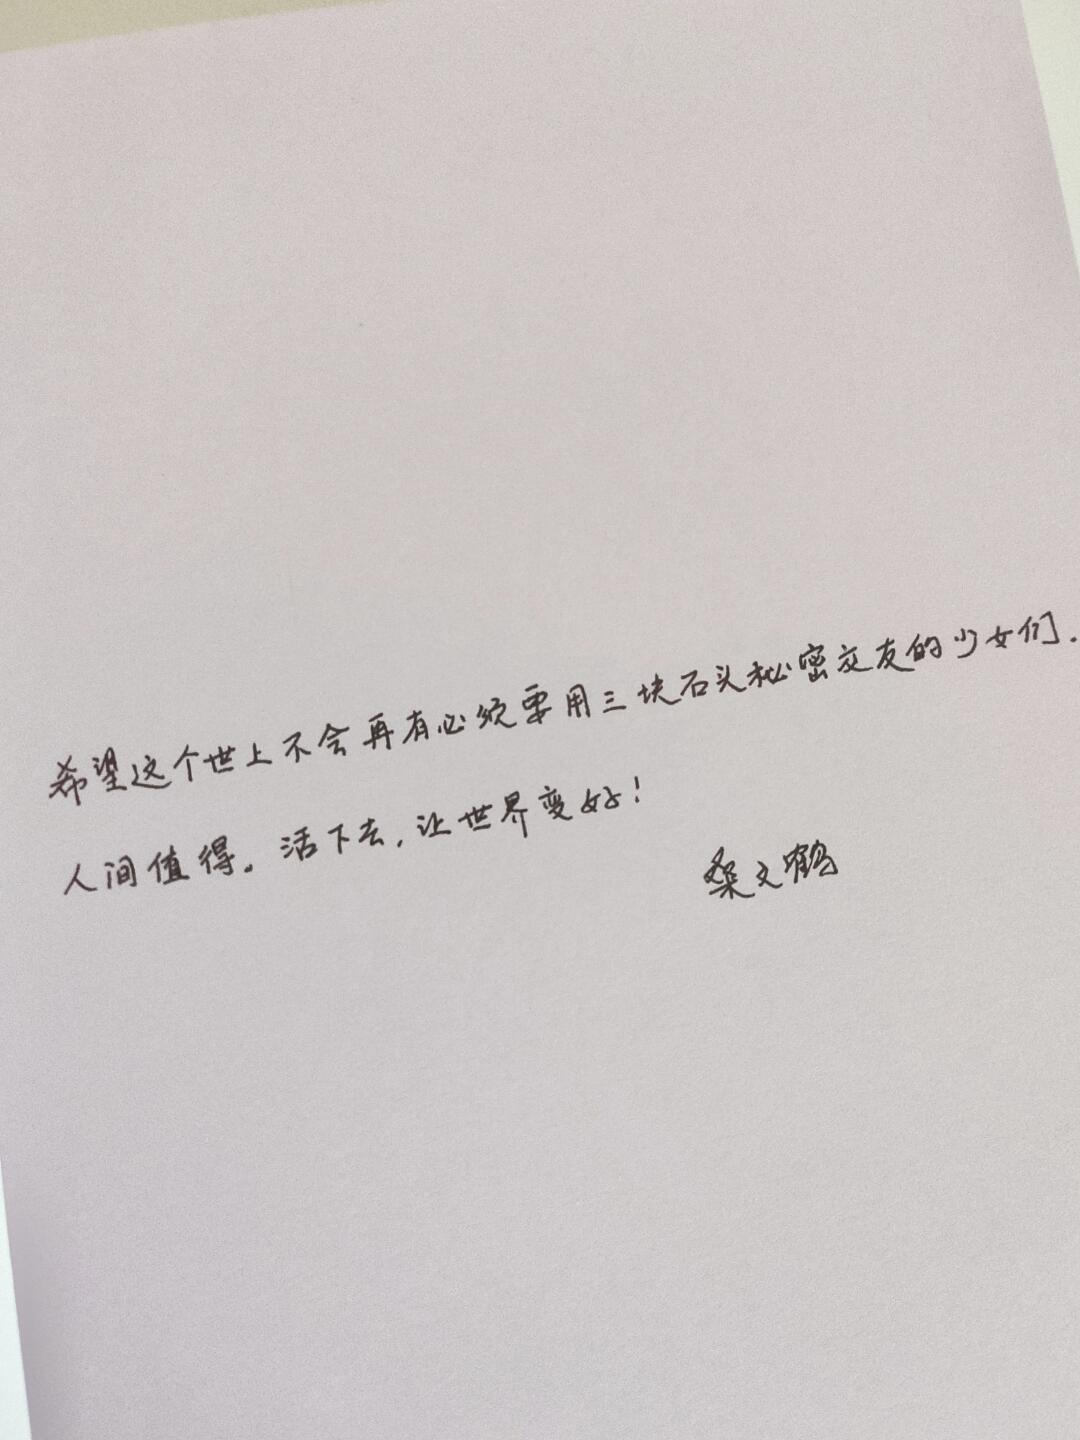 希望这个世上不会再有必须要用三块石头秘密交友的少女们.
人间值得。活下去,让世界变好!
桑文鹤